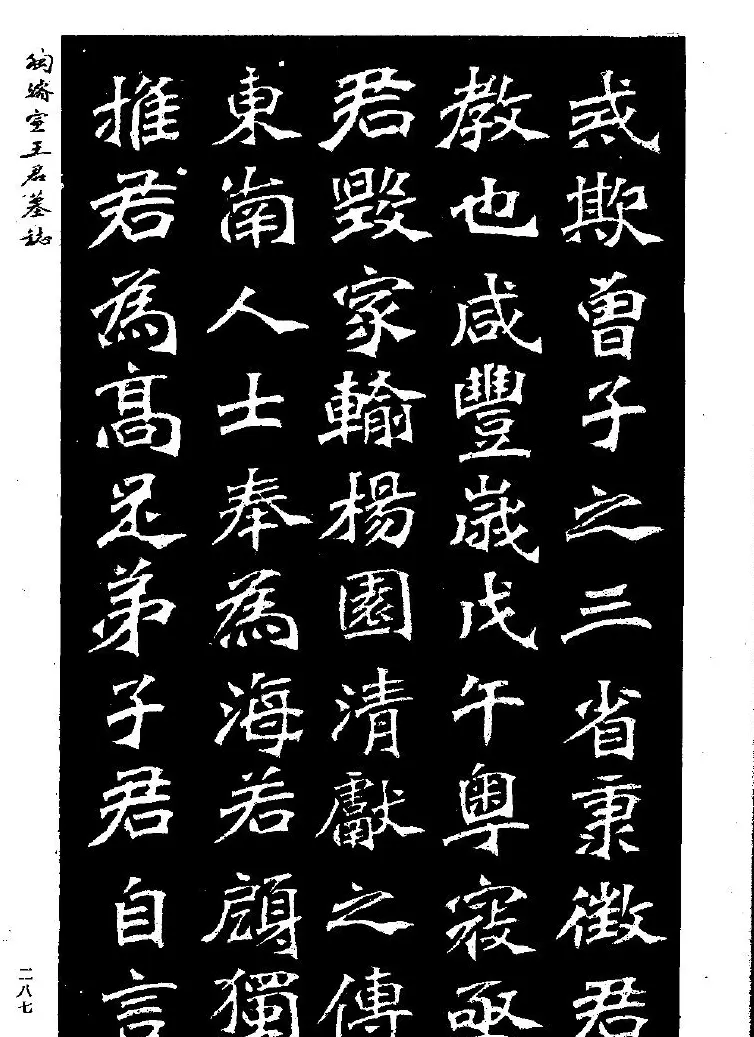 或欺曾子之三省秉徵君
教也咸豐歲戊午粵寇亟
君毀家輸楊園清獻之傳
東南人士奉為海若顧獨
推君為高足弟子君自言
陶濬宣王君墓誌
二八七